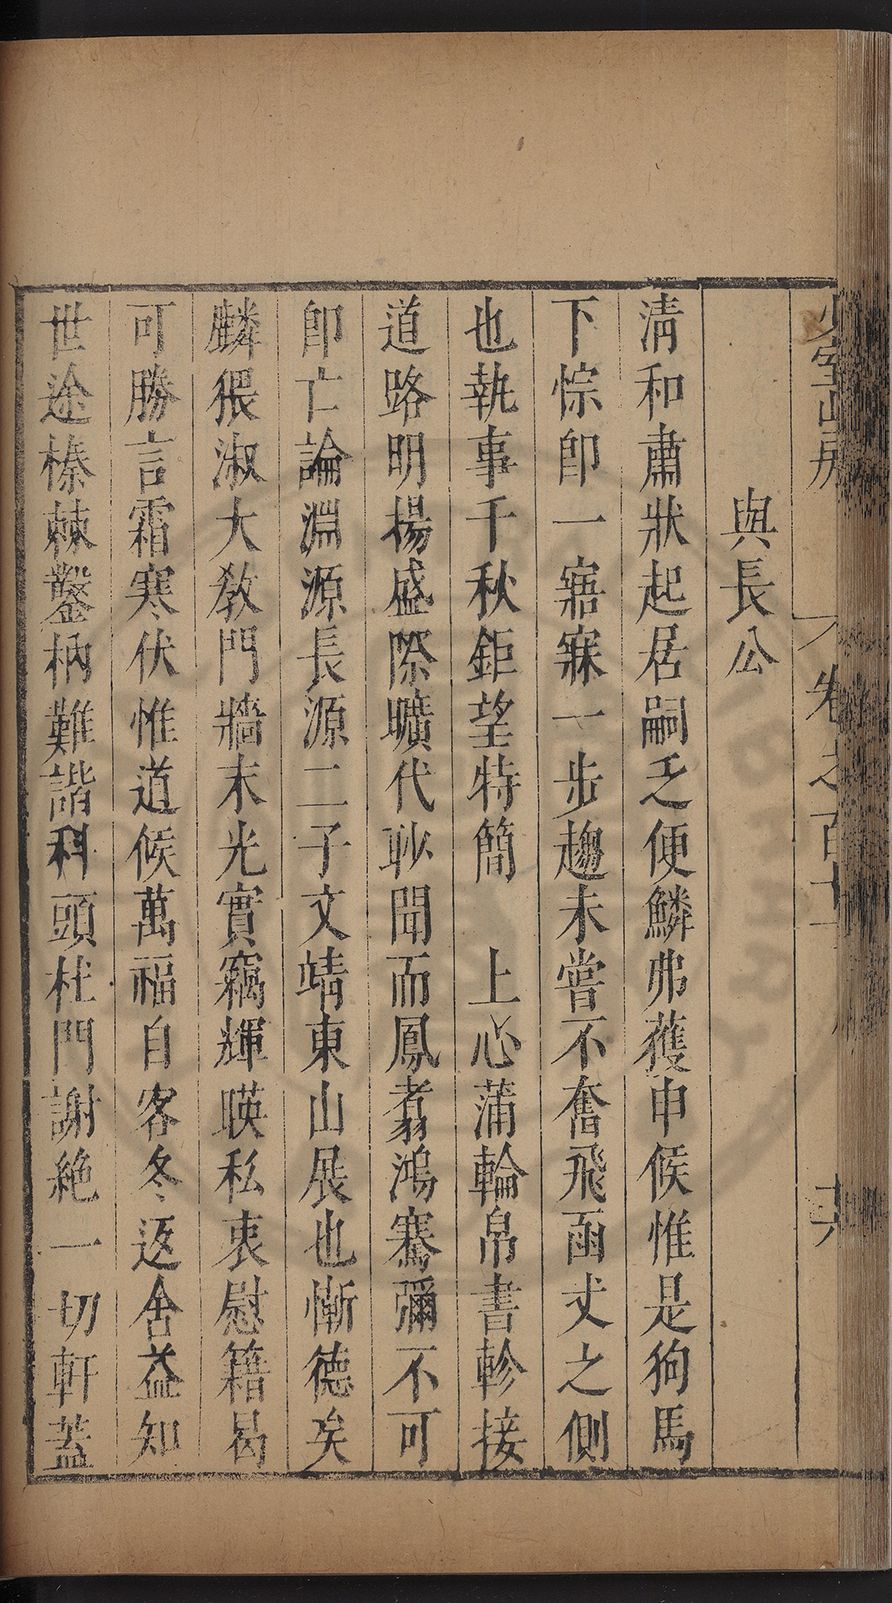 少室山房
卷之百十
與長公
清和肅狀起居嗣乏便鱗弗獲申候惟是狗馬
下悰卽一寤寐一步趨未嘗不奮飛函丈之側
也執事千秋鉅望特簡　上心蒲輪帛書軫接
道路明揚盛際曠代眇聞而鳳翥鴻騫彌不可
卽亡論淵源長源二子文靖東山展也慚德矣
麟猥淑大教門牆末光實竊輝暎私衷慰籍曷
可勝言霜寒伏惟道候萬福自客冬返舍益知
世途榛棘鑿枘難諧科頭杜門謝絕一切軒蓋